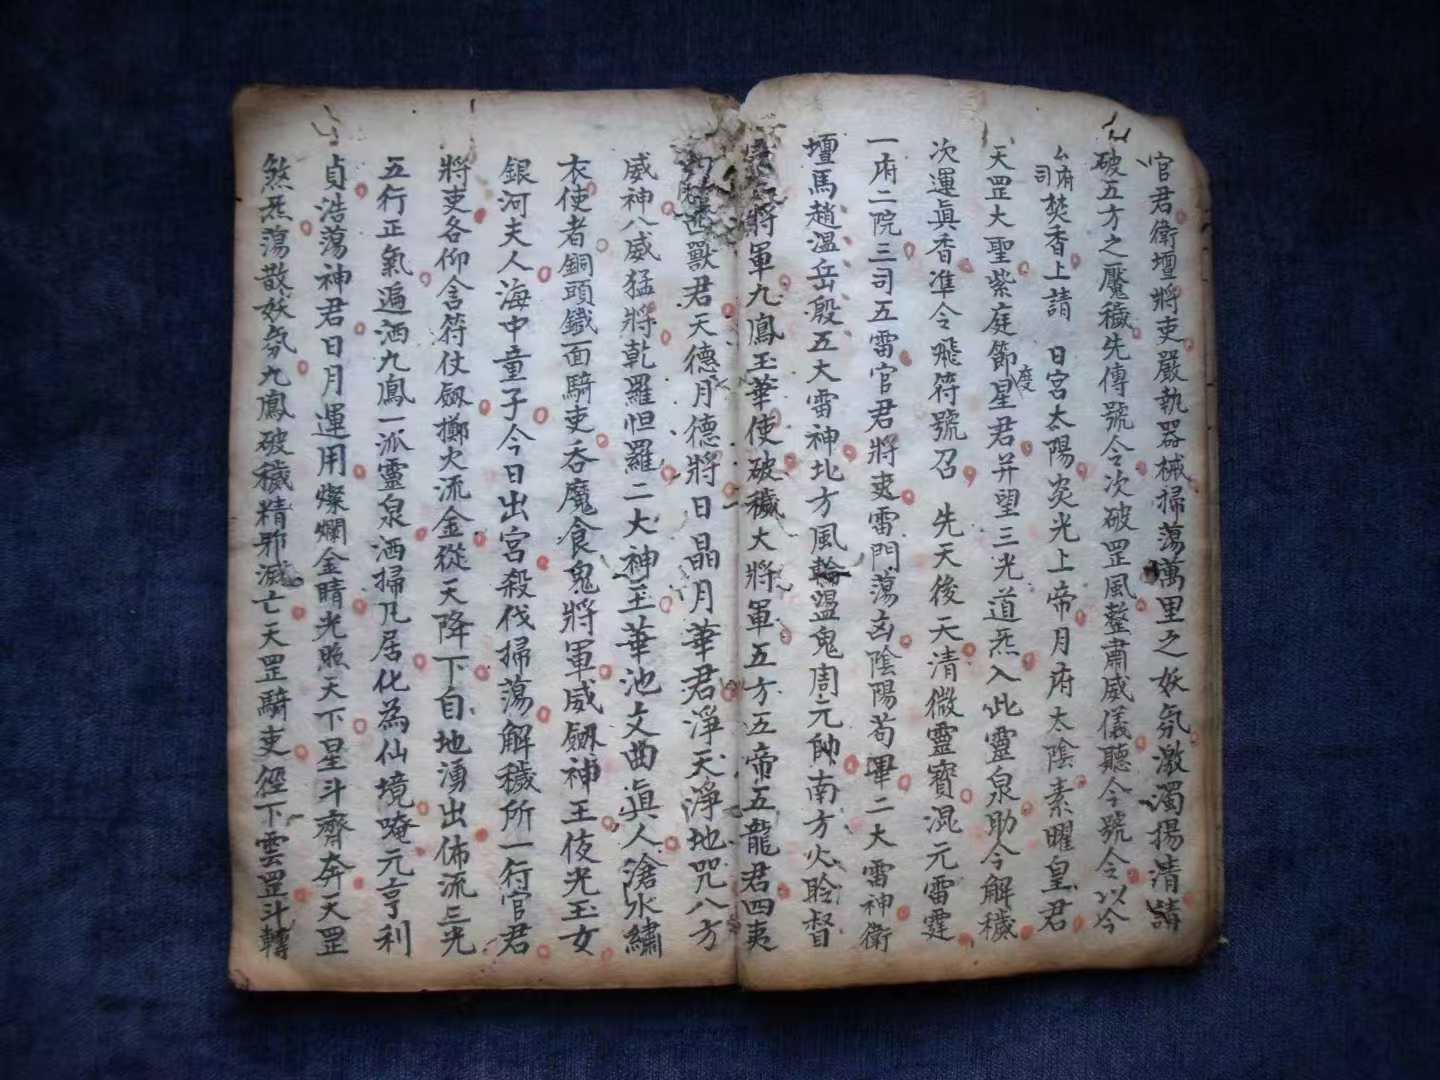 官君衛壇將吏嚴執器械掃蕩萬里之妖氛激濁揚清請
破五方之魘穢先傳號令次破罡風整肅威儀聽令號令以今
厶府司焚香上請 日宮太陽炎光上帝月府太陰素曜皇君
天罡大聖紫庭節度星君并望三光道炁入此靈泉助今解穢
次運眞香準令飛符號召 先天後天清微靈寶混元雷霆
一府二院三司五雷官君將吏雷門蕩凶陰陽苟畢二大雷神衛
壇馬趙溫岳殷五大雷神北方風輪溫鬼周元帥南方火聆督
將軍九鳳玉華使破穢大將軍五方五帝五龍君四夷
獸君天德月德將日晶月華君淨天淨地咒八方
威神八威猛將乾羅怛羅二大神王華池文曲眞人滄水繡
衣使者銅頭鐵面騎吏吞魔食鬼將軍威劔神王伎光玉女
銀河夫人海中童子今日出宮殺伐掃蕩解穢所一行官君
將吏各仰含符仗劔擲火流金從天降下自地湧出佈流三光
五行正氣遍洒九鳳一派靈泉洒掃凡居化為仙境唵元亨利
貞浩蕩神君日月運用燦爛金睛光照天下星斗齋奔天罡
煞炁蕩散妖氛九鳳破穢精邪滅亡天罡騎吏徑下雲罡斗轉